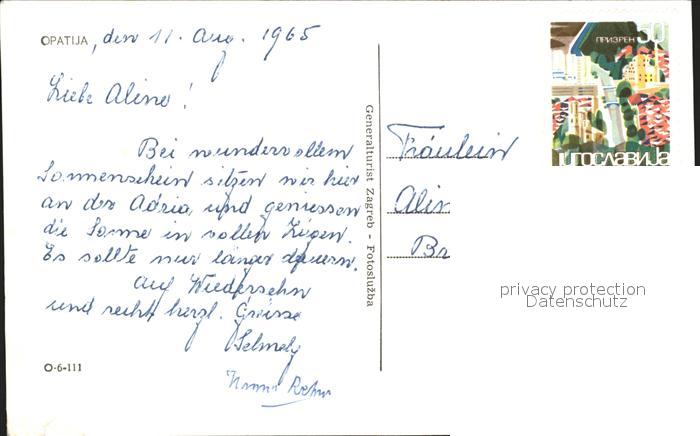 OPATIJA, den 11. Aug. 1965
Liebe Aline!
Bei wundervollem
Sonnenschein sitzen wir hier
an der Adria, und geniessen
die Sonne in vollen Zügen.
Es sollte nur länger dauern.
Auf Wiedersehn
und recht herzl. Grüsse
O-6-111
Generalturist Zagreb - Fotoslužba
ПРИЗРЕН 50
ЈУГОСЛАВИЈА
Fräulein
Alin
Br
privacy protection
Datenschutz